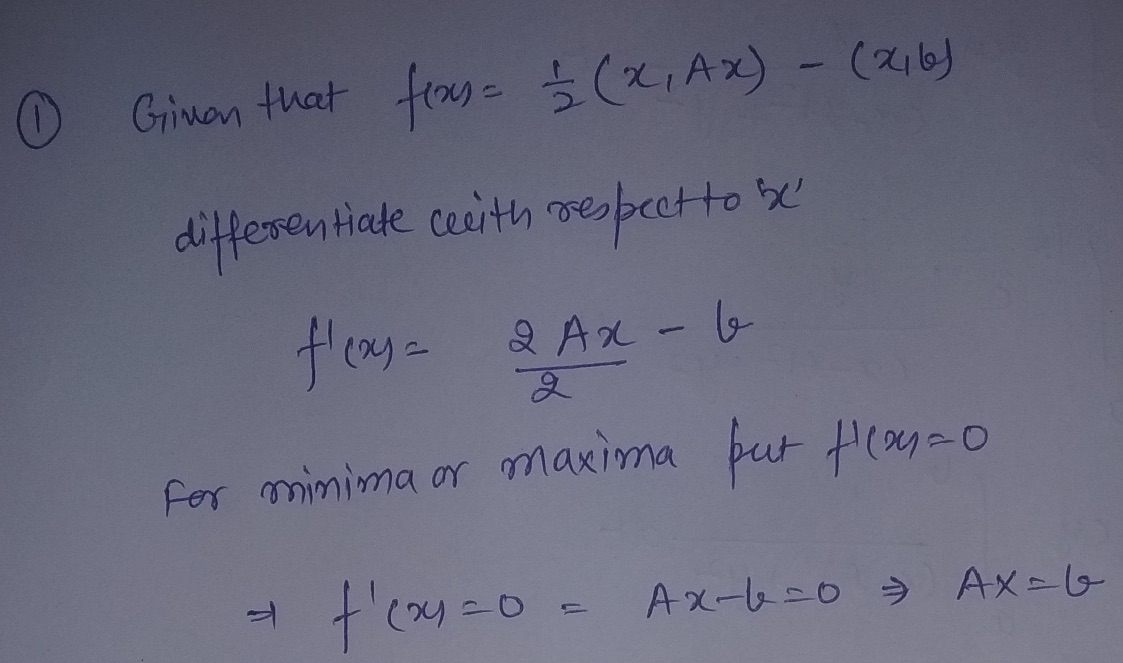 ① Given that f(x) = 1/2 (x, Ax) - (x, b)
differentiate with respect to 'x'
f'(x) = 2Ax/2 - b
For minima or maxima put f'(x) = 0
⇒ f'(x) = 0 = Ax - b = 0 ⇒ AX = b